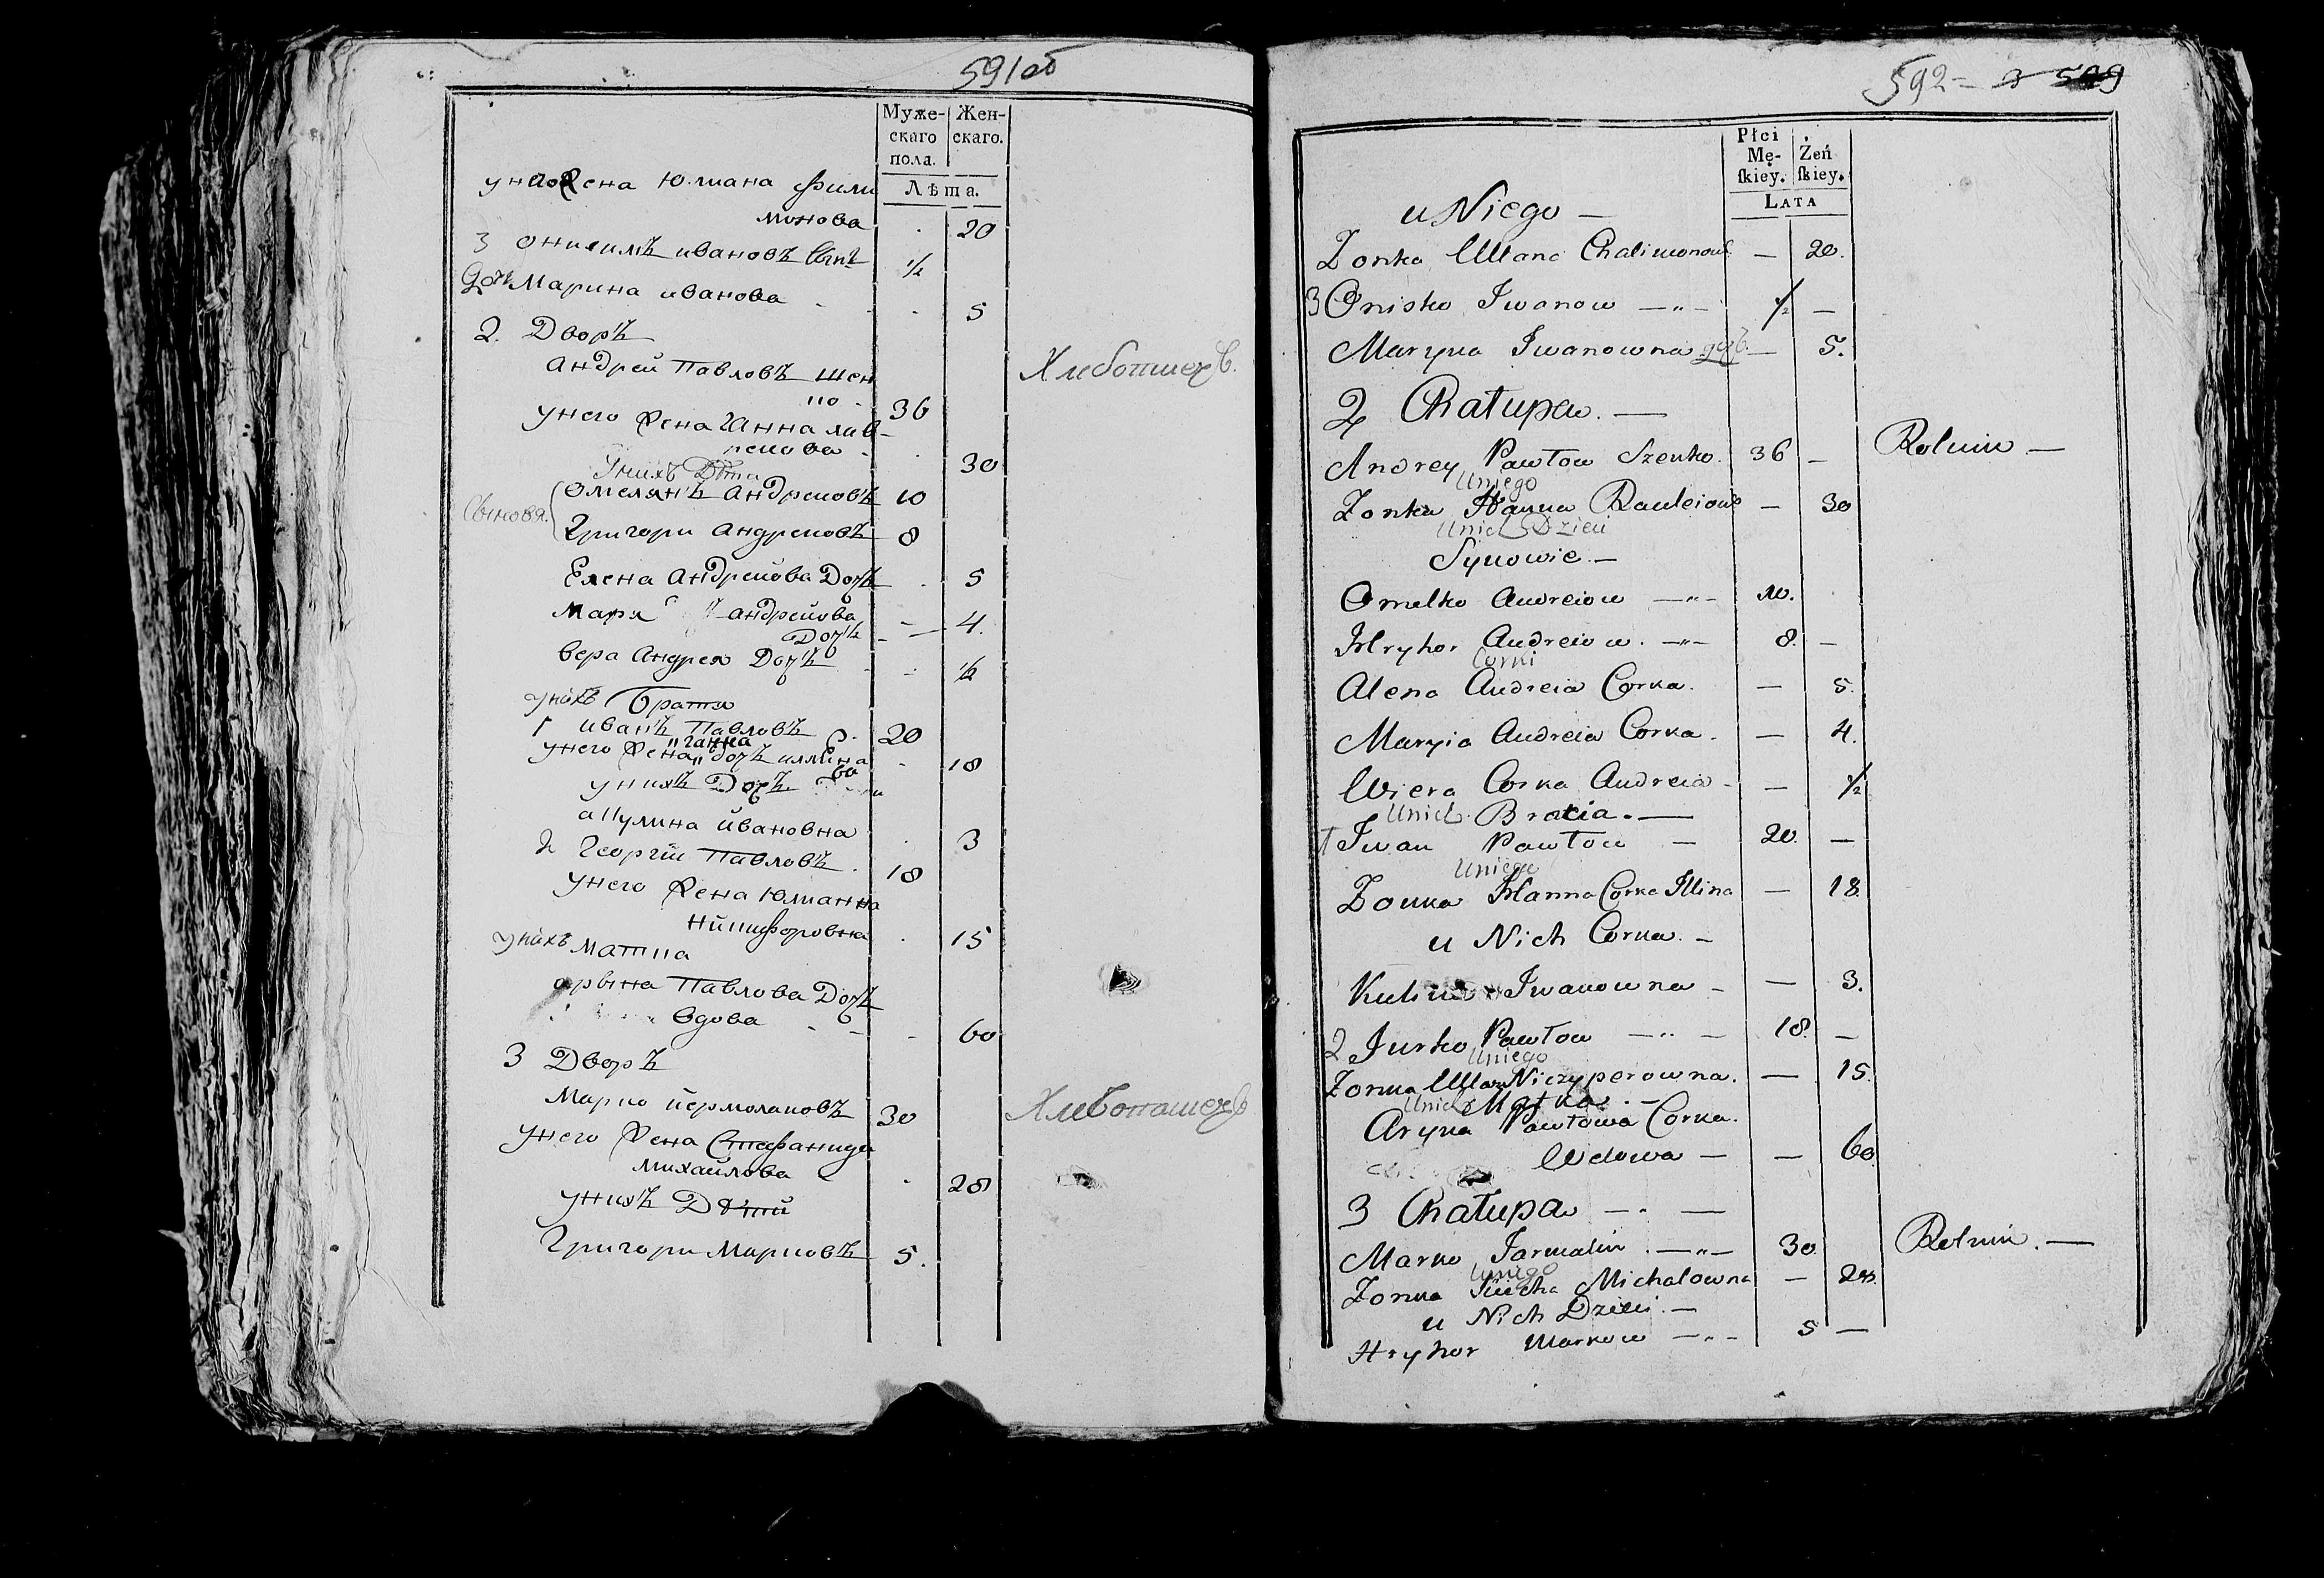 591об
Муже- Жен-
скаго скаго.
пола.
Лѣта.
унаго жена Юлиана Фили
монова 20
3 Онисимъ ивановъ Сынъ ½
Дочь Марина иванова 5
2. Дворъ
Андрей Павловъ Шен
ко 36 Хлебопашец
унего жена Ганна
30
Унихъ Дети
Сыновя Омелянъ Андреевъ 10
Григори Андреевъ 8
Елена Андреова Дочъ 5
Маря Андреова
Дочъ 4.
Вера Андрея Дочъ ½
унихъ Братя
1 иванъ Павловъ 20
ганна
унего жена дочъ иллина 18
унихъ Дочъ
акулина ивановна 3
2 Георгий Павловъ 18
унего жена Юлианна
Ничипоровна 15
унихъ Матка
арына Павлова Дочъ
Вдова 60
3 Дворъ
Марко йермолаковъ 30 Хлебопашец
унего жена Стефанида
Михайлова 28
унихъ Дети
Григори Марковъ 5.
592 -
Płci
Mę- Żeń
ſkiey. ſkiey.
LATA
u Niego —
Zonka Ullana Chalimonow — 20.
3 Onisko Iwanow —„— ½ —
Maryna Iwanowna — 5.
2 Chałupa. —
Andrey Pawłow Szenko. 36 — Rolnik —
Uniego
Zonka Hanna — 30
Unich Dzieci
Synowie. —
Omelko Andreiow —„— 10.
Hryhor Andreiow. —„— 8. —
Corki
Alena Andreia Corka. — 5.
Maryia Andreia Corka. — 4.
Wiera Corka Andreia — — ½
Unich Bracia. —
1 Iwan Pawłow — 20. —
Uniego
Zonka Hanna Corka Illina — 18.
u Nich Corka. —
Kulina Iwanowna — — 3.
2 Jurko Pawłow —„— 18. —
Uniego
Zonka Ullan Niczyperowna. — 15.
Unich Matka. —
Aryna Pawłowa Corka.
Wdowa — — 60
3 Chałupa — —
Marko Jarmalin. —„— 30. Rolnik. —
Uniego
Zonka Michalowna — 28.
u Nich Dzieci. —
Hryhor Markow —„— 5 —